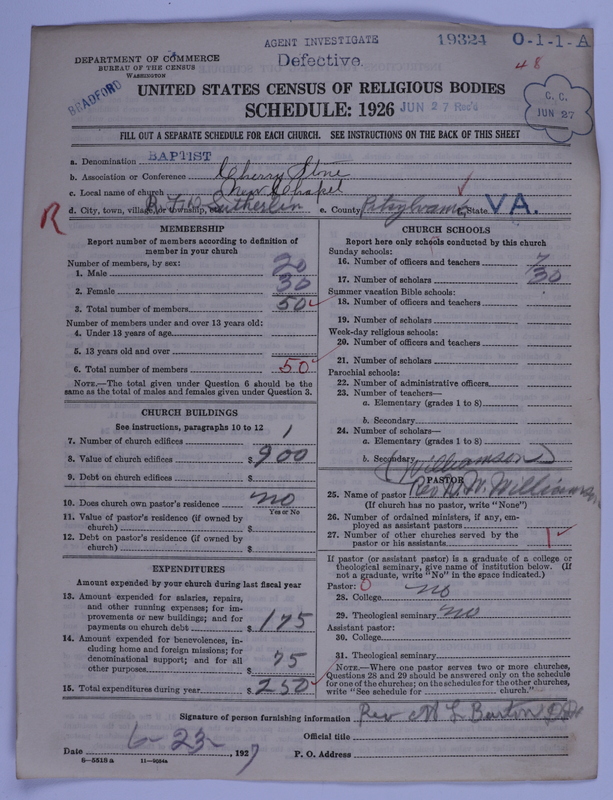 AGENT INVESTIGATE
19324 O-1-1-A
Defective.
48
DEPARTMENT OF COMMERCE
BUREAU OF THE CENSUS
WASHINGTON
BRADFORD
UNITED STATES CENSUS OF RELIGIOUS BODIES
SCHEDULE: 1926
JUN 27 Rec'd
C. C.
JUN 27
FILL OUT A SEPARATE SCHEDULE FOR EACH CHURCH. SEE INSTRUCTIONS ON THE BACK OF THIS SHEET
a. Denomination BAPTIST
b. Association or Conference Cherry Stone
c. Local name of church New Chapel
d. City, town, village, or township, Sutherlin e. County State VA.
R
MEMBERSHIP
Report number of members according to definition of
member in your church
Number of members, by sex:
1. Male 20
2. Female 30
3. Total number of members 50
Number of members under and over 13 years old:
4. Under 13 years of age
5. 13 years old and over
6. Total number of members 50
NOTE.—The total given under Question 6 should be the
same as the total of males and females given under Question 3.
CHURCH BUILDINGS
See instructions, paragraphs 10 to 12
7. Number of church edifices 1
8. Value of church edifices $ 900
9. Debt on church edifices $
10. Does church own pastor's residence no
Yes or No
11. Value of pastor's residence (if owned by
church) $
12. Debt on pastor's residence (if owned by
church) $
EXPENDITURES
Amount expended by your church during last fiscal year
13. Amount expended for salaries, repairs,
and other running expenses; for im-
provements or new buildings; and for
payments on church debt $ 175
14. Amount expended for benevolences, in-
cluding home and foreign missions; for
denominational support; and for all
other purposes $ 75
15. Total expenditures during year $ 250
CHURCH SCHOOLS
Report here only schools conducted by this church
Sunday schools:
16. Number of officers and teachers 7
17. Number of scholars 30
Summer vacation Bible schools:
18. Number of officers and teachers
19. Number of scholars
Week-day religious schools:
20. Number of officers and teachers
21. Number of scholars
Parochial schools:
22. Number of administrative officers
23. Number of teachers—
a. Elementary (grades 1 to 8)
b. Secondary
24. Number of scholars—
a. Elementary (grades 1 to 8)
b. Secondary
(Williamson)
PASTOR
25. Name of pastor Rev Williamson
(If church has no pastor, write "None")
26. Number of ordained ministers, if any, em-
ployed as assistant pastors
27. Number of other churches served by the
pastor or his assistants 1
If pastor (or assistant pastor) is a graduate of a college or
theological seminary, give name of institution below. (If
not a graduate, write "No" in the space indicated.)
Pastor: 0
28. College no
29. Theological seminary no
Assistant pastor:
30. College
31. Theological seminary
NOTE.—Where one pastor serves two or more churches,
Questions 28 and 29 should be answered only on the schedule
for one of the churches; on the schedules for the other churches,
write "See schedule for church."
Signature of person furnishing information Rev M L Barton
Official title
Date 6-23-, 1927 P. O. Address
6-5518a 11-9084a